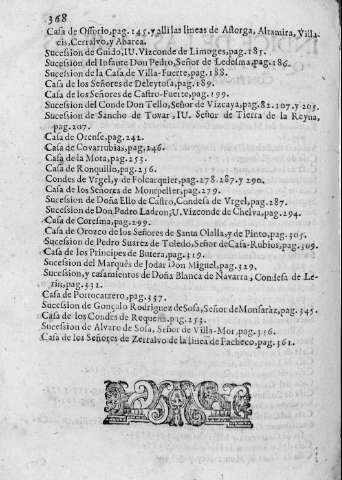 368
Casa de Ossorio, pag. 145. y alli las lineas de Astorga, Altamira, Villa-
cis, Cerralvo, y Abarca.
Sucession de Guido, IU. Vizconde de Limoges, pag. 185.
Sucession del Infante Don Pedro, Señor de Ledesma, pag. 186.
Sucession de la Casa de Villa-Fuerte, pag. 188.
Casa de los Señores de Deleytosa, pag. 189.
Casa de los Señores de Castro-Fuerte, pag. 199.
Sucession del Conde Don Tello, Señor de Vizcaya, pag. 82. 107. y 205.
Sucession de Sancho de Tovar, IU. Señor de Tierra de la Reyna,
pag. 207.
Casa de Orense, pag. 242.
Casa de Covarrubias, pag. 246.
Casa de la Mota, pag. 253.
Casa de Ronquillo, pag. 256.
Condes de Vrgel, y de Folcarquier, pag. 278. 287. y 290.
Casa de los Señores de Montpeller, pag. 279.
Sucession de Doña Ello de Castro, Condesa de Vrgel, pag. 287.
Sucession de Don Pedro Ladron, U. Vizconde de Chelva, pag. 294.
Casa de Coresma, pag. 299.
Casa de Orozco de los Señores de Santa Olalla, y de Pinto, pag. 305.
Sucession de Pedro Suarez de Toledo, Señor de Casa-Rubios, pag. 309.
Casa de los Principes de Butera, pag. 319.
Sucession del Marquès de Jodar Don Miguel, pag. 329.
Sucession, y casamientos de Doña Blanca de Navarra, Condesa de Le-
rin, pag. 332.
Casa de Portocarrero, pag. 337.
Sucession de Gonçalo Rodriguez de Sosa, Señor de Monsaraz, pag. 345.
Casa de los Condes de Requena, pag. 253.
Sucession de Alvaro de Sosa, Señor de Villa-Mor, pag. 356.
Casa de los Señores de Zerralvo de la linea de Pacheco, pag. 361.